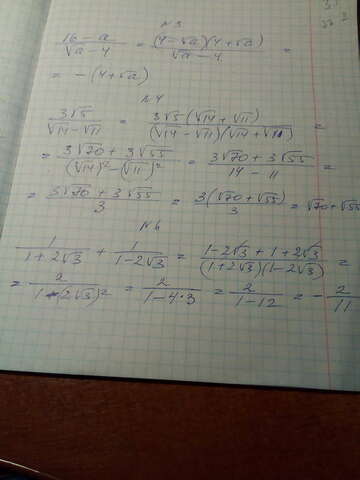 N 3
16 - a / √a - 4 = (4 - √a)(4 + √a) / √a - 4 =
= - (4 + √a)
N 4
3√5 / √14 - √11 = 3√5 (√14 + √11) / (√14 - √11)(√14 + √11) =
= 3√70 + 3√55 / (√14)² - (√11)² = 3√70 + 3√55 / 14 - 11 =
= 3√70 + 3√55 / 3 = 3(√70 + √55) / 3 = √70 + √55
N 6
1 / 1 + 2√3 + 1 / 1 - 2√3 = 1 - 2√3 + 1 + 2√3 / (1 + 2√3)(1 - 2√3) =
= 2 / 1 - (2√3)² = 2 / 1 - 4·3 = 2 / 1 - 12 = - 2 / 11